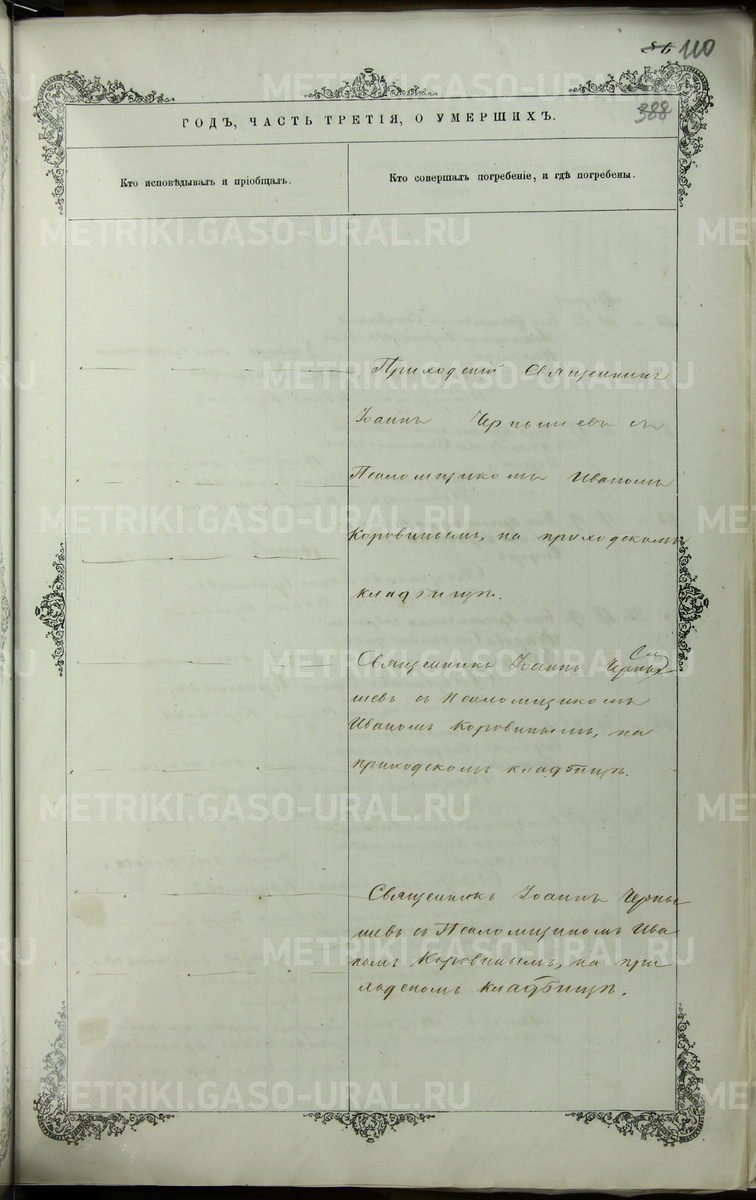 86 110
388
ГОДЪ, ЧАСТЬ ТРЕТІЯ, О УМЕРШИХЪ.
Кто исповѣдывалъ и пріобщалъ.
Кто совершалъ погребеніе, и гдѣ погребены.
Приходскій Священникъ
Іоаннъ Чернышевъ съ
Псаломщикомъ Иваномъ
Коровинымъ, на приходскомъ
кладбищѣ.
Священникъ Іоаннъ Черны
шевъ съ Псаломщикомъ
Иваномъ Коровинымъ, на
приходскомъ кладбищѣ.
Священникъ Іоаннъ Черны
шевъ съ Псаломщикомъ Ива
номъ Коровинымъ, на при
ходскомъ кладбищѣ.
METRIKI.GASO-URAL.RU